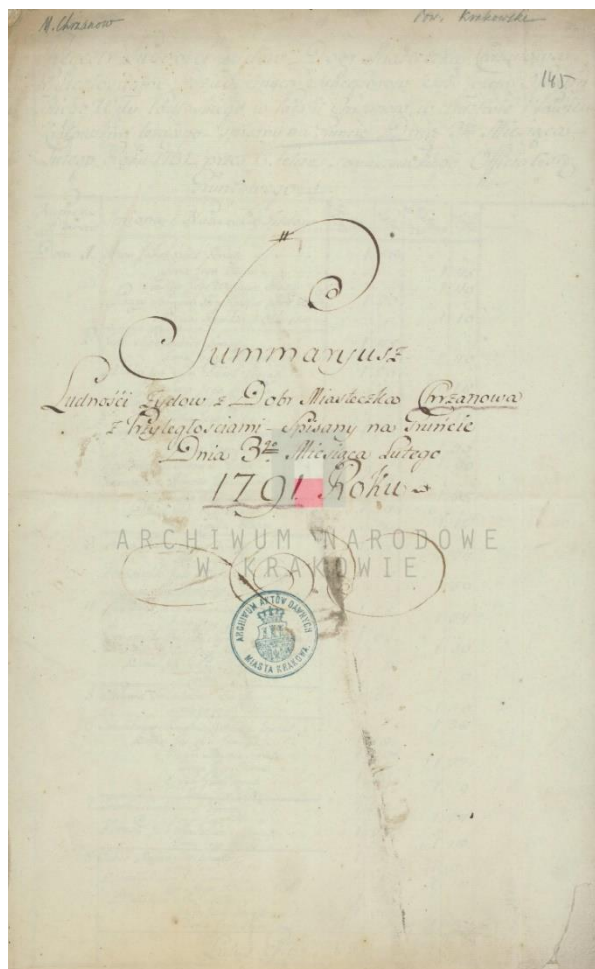 M. Chrzanow
Pow. Krakowski
145
Summaryusz
Ludności Żydow z Dobr Miasteczka Chrzanowa
z Przyległościami - Spisany na Gruńcie
Dnia 3go Miesiąca Lutego
1791 Roku
ARCHIWUM NARODOWE
W KRAKOWIE
ARCHIWUM AKTÓW DAWNYCH
MIASTA KRAKOWA